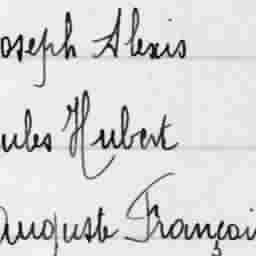 oseph Alexis
ules Hubert
Auguste Françoi